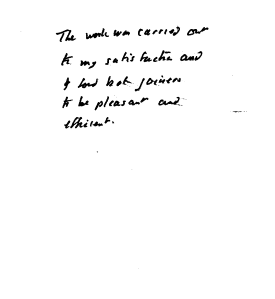 The work was carried out
to my satisfaction and
I found both joiners
to be pleasant and
efficient.